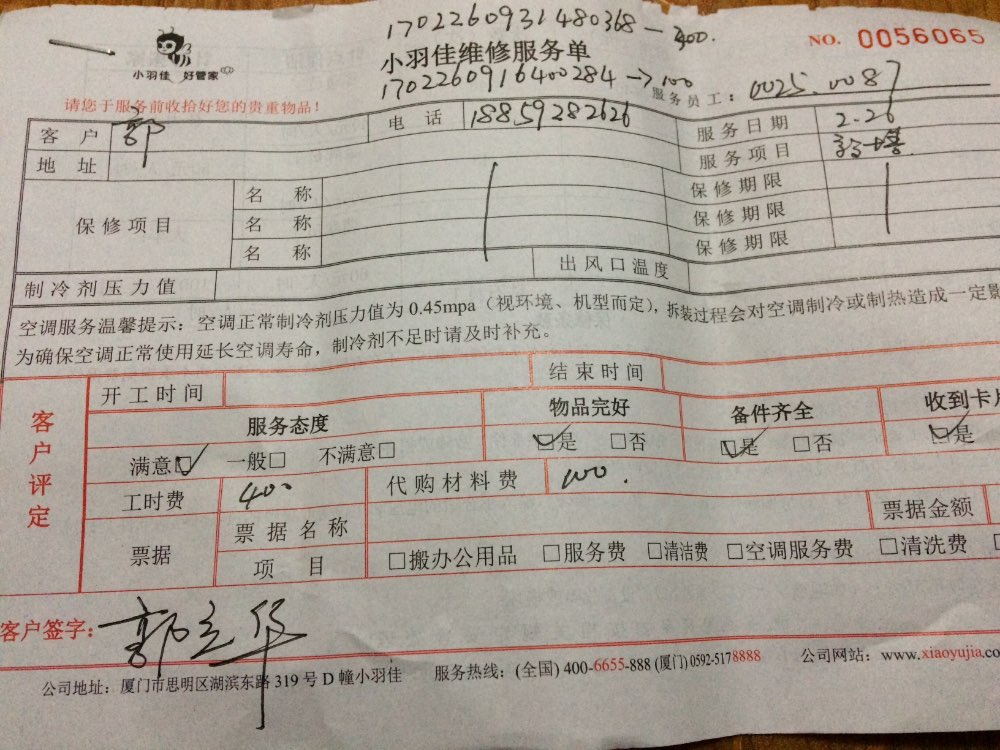 1702260931480368—400.
小羽佳维修服务单
NO. 0056065
小羽佳 好管家
1702260916400284→100
服务员工: 0025.0087
请您于服务前收拾好您的贵重物品!
客 户 郭 电 话 18859282626 服务日期 2.26
地 址 服务项目
保修项目 名 称 保修期限
名 称 保修期限
名 称 保修期限
制冷剂压力值 出风口温度
空调服务温馨提示: 空调正常制冷剂压力值为 0.45mpa (视环境、机型而定), 拆装过程会对空调制冷或制热造成一定影
为确保空调正常使用延长空调寿命, 制冷剂不足时请及时补充。
客户评定
开工时间 结束时间
服务态度 物品完好 备件齐全 收到卡片
满意☑ 一般□ 不满意□ ☑是 □否 ☑是 □否 ☑是
工时费 400 代购材料费 100.
票据 票据名称 票据金额
项 目 □搬办公用品 □服务费 □清洁费 □空调服务费 □清洗费
客户签字: 郭立华
公司地址: 厦门市思明区湖滨东路 319 号 D 幢小羽佳 服务热线: (全国) 400-6655-888 (厦门) 0592-5178888 公司网站: www.xiaoyujia.co